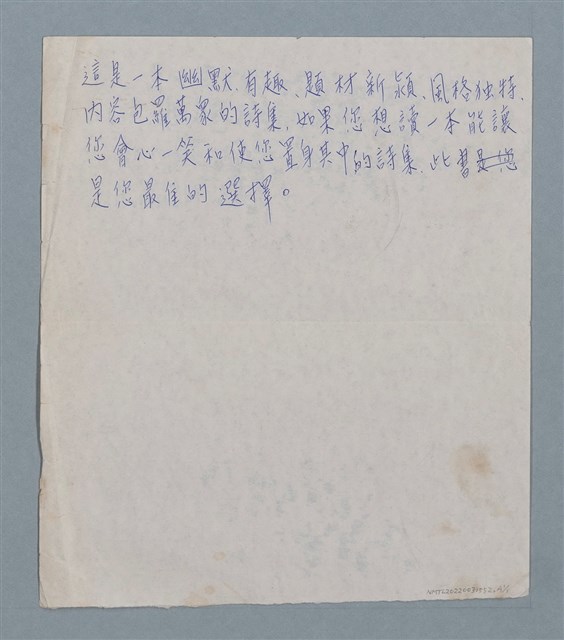 這是一本幽默、有趣、題材新潁、風格独特、
內容包羅萬象的詩集，如果您想讀一本能讓
您會心一笑和使您置身其中的詩集，此書是您
是您最佳的選擇。